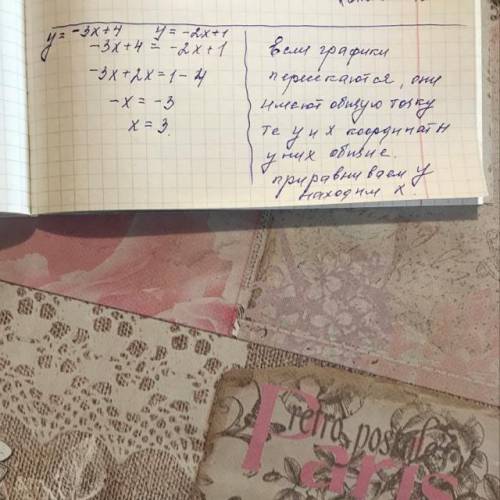 y = -3x+4 y = -2x+1
-3x+4 = -2x+1
-3x+2x = 1-4
-x = -3
x = 3.
Если графики
пересекаются, они
имеют общую точку
те у и х координаты
у них общие.
приравниваем у
находим х.
retro postale
Paris